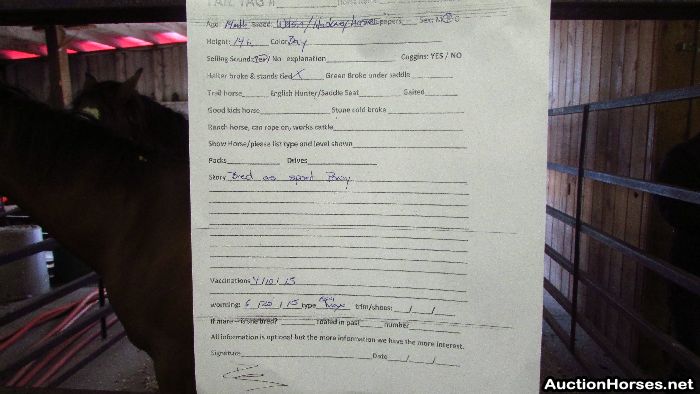 TAIL TAG #
Age: Breed: Welsh/Hackney papers Sex: M G
Height: 14 Color Bay
Selling Sound: YES / No explanation Coggins: YES / NO
Halter broke & stands tied X Green Broke under saddle
Trail horse English Hunter/Saddle Seat Gaited
Good kids horse Stone cold broke
Ranch horse, can rope on, works cattle
Show Horse/please list type and level shown
Packs Drives
Story Bred as sport Pony
Vaccinations 4/10/15
worming: 6/20/15 type trim/shoes: / /
If mare - is she bred? foaled in past number
All information is optional but the more information we have the more interest.
Signature Date / /
AuctionHorses.net